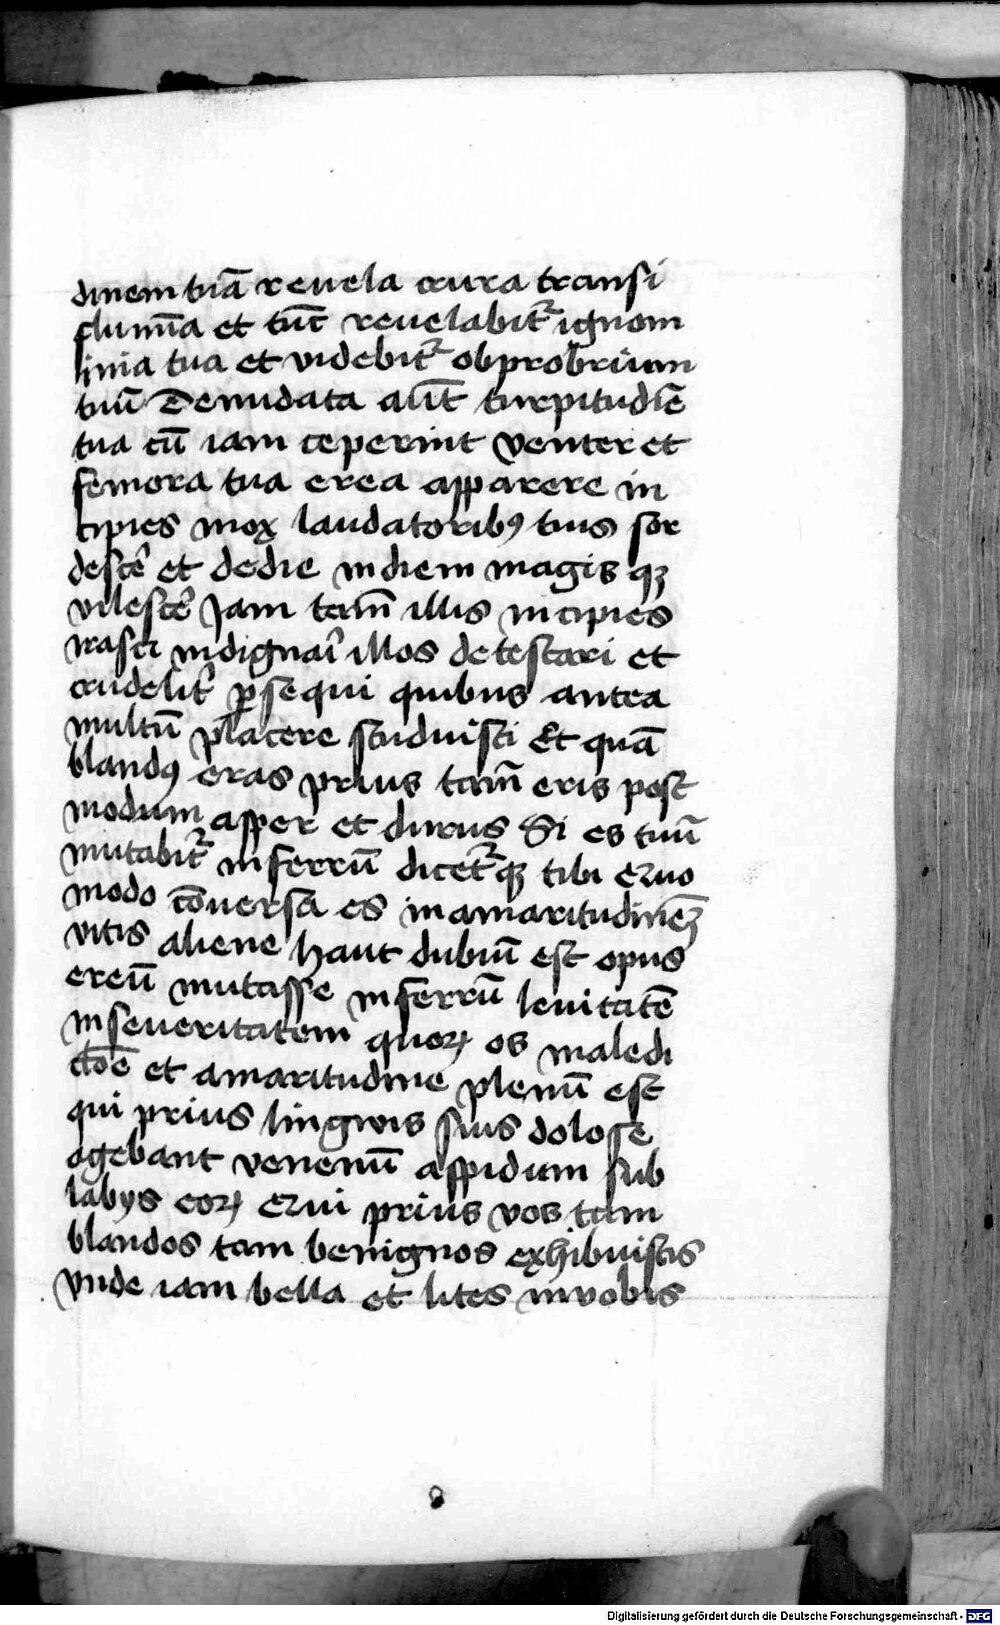 dinem tuā reuela crura transi
flumīa et tūc reuelabit᷑ ignom
inia tua et videbit᷑ obprobrium
tuū Denudata aūt turpitudīe
tua cū iam ceperint venter et
femora tua erea apparere in
cipies mox laudatoribꝰ tuis sor
descē᷑ et dedie indiem magis qꝫ
vilescē᷑ Jam tam̄ illis incipies
irasci indignaī illos detestari et
crudelit᷑ ꝑsequi quibus antea
multū placere studuisti Et quā
blandꝰ eras prius tam̄ eris post
modum asper et durus Si es tuū
mutabit᷑ inferrū dicet᷑qꝫ tibi Quo
modo cōuersa es inamaritudinēꝫ
vitis aliene haut dubiū est opus
ereū mutasse inferrū leuitatē
inseueritatem quoꝝ os maledi
ctōe et amaritudine plenū est
qui prius lingwis suis dolose
agebant venenū aspidum sub
labys eoꝝ Qui prius vos tam
blandos tam benignos exhibuistis
vnde iam bella et lites invobis
Digitalisierung gefördert durch die Deutsche Forschungsgemeinschaft - DFG